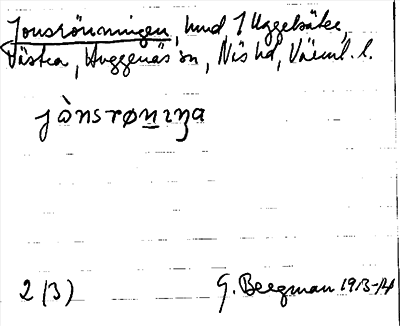 Jonsrönningen, hmd 1 Uggelsäter,
Västra, Huggenäs sn, Näs hd, Värml. l.
jὰnsrøn̲ıŋa
2 (3)
G. Bergman 1913-14